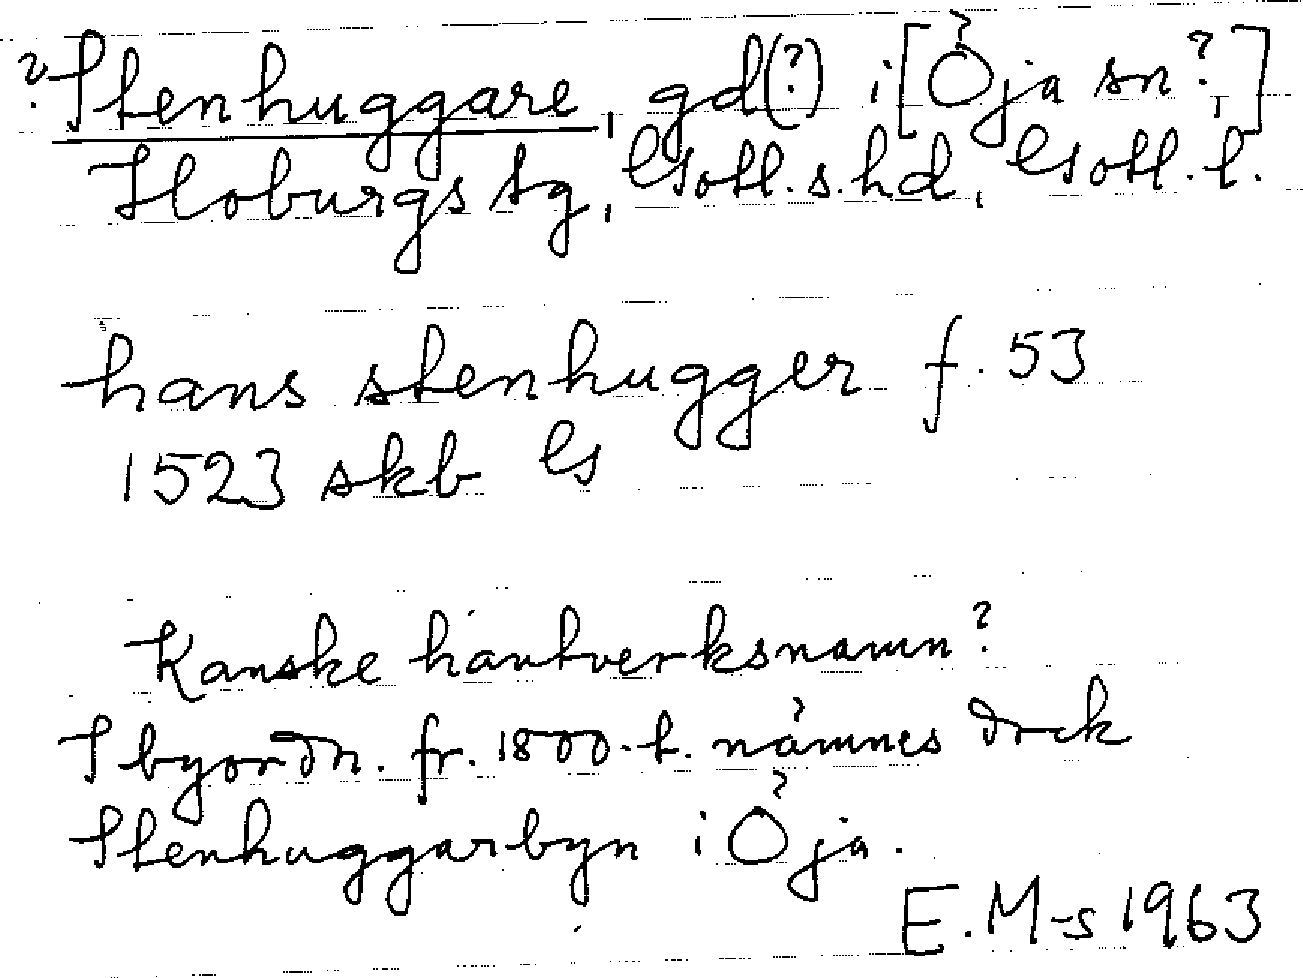 ? Stenhuggare, gd(?) i [Öja sn?,]
Hoburgs tg, Gotl. s. hd, Gotl. l.
hans stenhugger f. 53
1523 skb G
Kanske hantverksnamn?
I byordn. fr. 1800-t. nämnes dock
Stenhuggarbyn i Öja.
E. M-s 1963